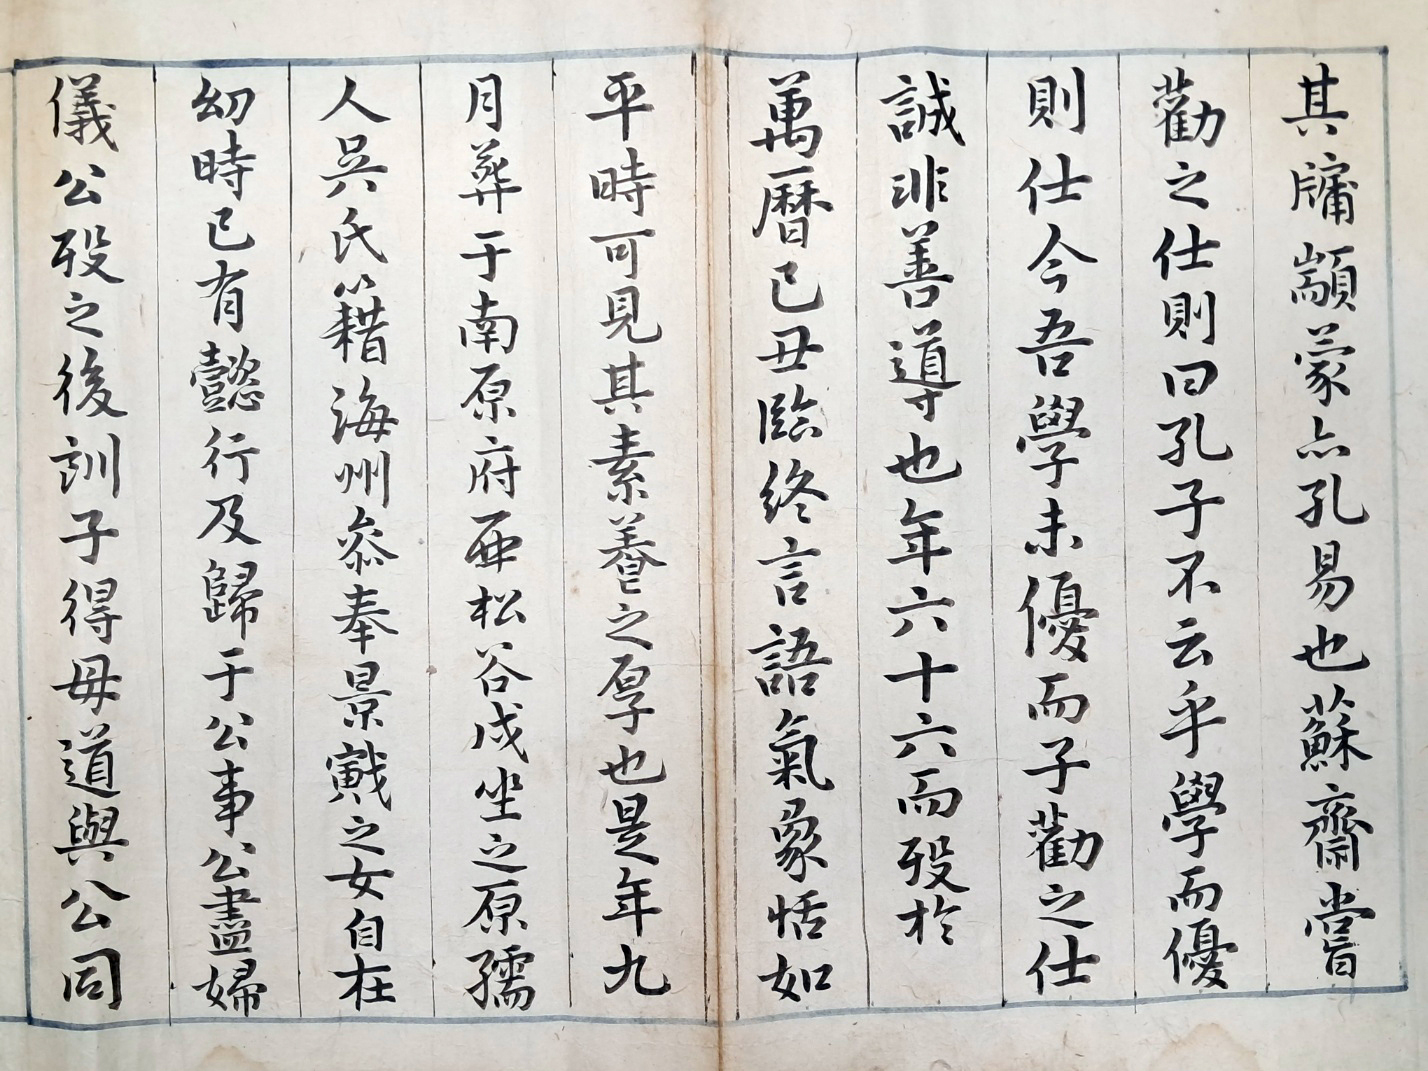 其牖顓蒙亦孔易也蘇齋嘗
勸之仕則曰孔子不云乎學而優
則仕今吾學未優而子勸之仕
誠非善導也年六十六而歿於
萬曆己丑臨終言語氣象恬如
平時可見其素養之厚也是年九
月葬于南原府亜松谷戌坐之原孺
人吳氏籍海州叅奉景戭之女自在
幼時已有懿行及歸于公事公盡婦
儀公歿之後訓子得母道與公同